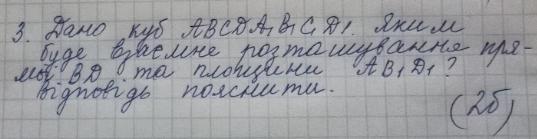 3. Дано куб ABCDA₁B₁C₁D₁. Яким
буде взаємне розташування пря-
мої BD та площини AB₁D₁?
Відповідь пояснити.
(2б)